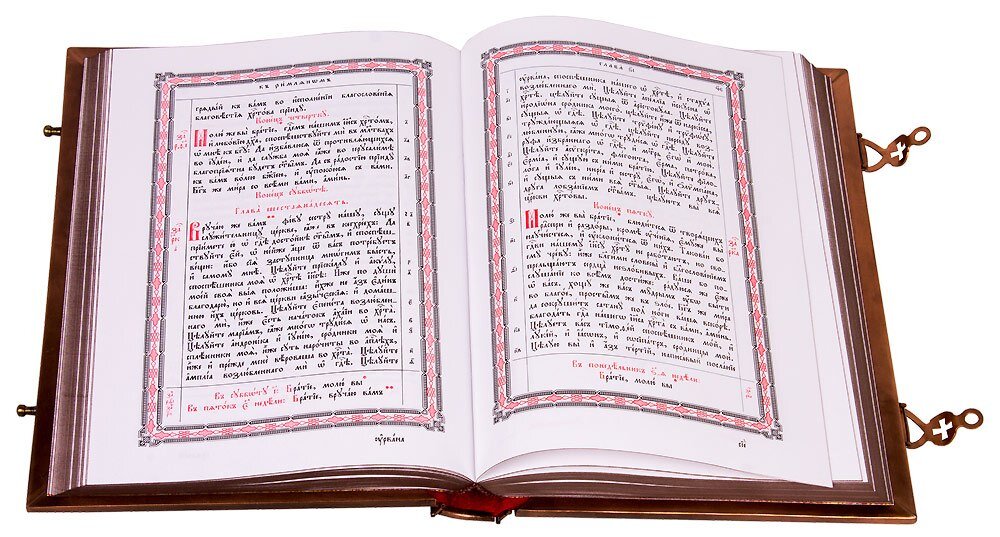 къ римлянѡмъ
грядый къ вамъ во исполненіи благословенія
благовѣстїѧ хр҃това прїидꙋ.
Конецъ четвертку.
Молю же вы братїе, гдⷭ҇емъ нашимъ і҆и҃съ хр҃томъ,
и҆ любовїю дх҃а, споспѣшствꙋйте ми въ мл҃твахъ
ѡ҆ мнѣ къ бг҃ꙋ: Да избавлюся ѿ противляющихся
во і҆ꙋдеи, и҆ да служба моѧ̀ ꙗ҆́же во іерусалимѣ
благопріѧтна бꙋдетъ ст҃ымъ. Да съ радостїю прїидꙋ
къ вамъ волею бж҃їею, и҆ ᲂу҆покоюсѧ съ вами.
Бг҃ъ же мира со всѣми вами, а҆минь.
Конецъ сꙋббѡтѣ.
Глава шестаѧнадесѧть.
Врꙋчаю же вамъ фівꙋ сестрꙋ нашꙋ, сꙋщꙋ
слꙋжительницꙋ цр҃кве, ꙗ҆́же въ кегхреѣхъ: Да
прїимете ю҆̀ ѡ҆ гдⷭ҇ѣ достойнѣ ст҃ымъ, и҆ споспѣш-
ствꙋйте є҆й, ѡ҆ нейже а҆ще ѿ васъ потребꙋетъ
вещи: и҆бо сїѧ̀ застꙋпница многимъ бысть,
и҆ самомꙋ мнѣ. Цѣлꙋйте прїскїллꙋ и҆ а҆кѵлꙋ,
споспѣшника моѧ̀ ѡ҆ хр҃тѣ і҆и҃сѣ: И҆̀же по дꙋши
моей своѧ̀ выѧ положиша: и҆̀хже не а҆зъ є҆динъ
благодарю, но и҆ всѧ̀ цр҃кви ꙗ҆зыческїѧ: и҆ домаш-
нюю и҆хъ церковь. Цѣлꙋйте є҆пенета возлюблен-
наго ми, и҆̀же є҆сть начатокъ а҆хаїи во хр҃та.
Цѣлꙋйте марїамь, ꙗ҆́же много трꙋдисѧ ѡ҆ насъ.
Цѣлꙋйте а҆ндроніка и҆ і҆ꙋнїю, сродники моѧ̀ и҆
сплѣнники моѧ̀, и҆̀же сꙋть нарочиты во а҆пⷭ҇лѣхъ,
и҆̀же и҆ прежде мене вѣроваша во хр҃та. Цѣлꙋйте
а҆мплїа возлюбленнаго ми ѡ҆ гдⷭ҇ѣ. Цѣлꙋйте
Въ сꙋббѡтꙋ Братїе, молю вы
Въ пѧтокъ є҃ недѣли: Братїе, врꙋчаю вамъ
ᲂу҆рвана
глава
ᲂу҆рвана, споспѣшника нашего ѡ҆ хр҃тѣ, и҆ стахѵа
возлюбленнаго ми. Цѣлꙋйте а҆пеллїа и҆скꙋсна ѡ҆
хр҃тѣ. Цѣлꙋйте сꙋщыѧ ѿ а҆рїстовꙋла. Цѣлꙋйте
и҆родїѡна сродника моего. Цѣлꙋйте и҆̀же ѿ наркїсса,
сꙋщыѧ ѡ҆ гдⷭ҇ѣ. Цѣлꙋйте трѵфенꙋ и҆ трѵфѡсꙋ
трꙋждающыѧсѧ ѡ҆ гдⷭ҇ѣ. Цѣлꙋйте персїдꙋ воз-
любленнꙋю, ꙗ҆́же много трꙋдисѧ ѡ҆ гдⷭ҇ѣ. Цѣлꙋйте
рꙋфа и҆збраннаго ѡ҆ гдⷭ҇ѣ, и҆ матерь є҆гѡ̀ и҆ мою.
Цѣлꙋйте а҆сѵгкрїта, флегонта, є҆рма, патрова,
є҆рмїа, и҆ сꙋщꙋю съ ними братїю. Цѣлꙋйте фїло-
лога и҆ і҆ꙋлїю, нирєа и҆ сестрꙋ є҆гѡ̀, и҆ ѻ҆лѵмпана,
и҆ сꙋщыѧ съ ними всѧ̀ ст҃ыѧ. Цѣлꙋйте дрꙋгъ
дрꙋга лобзанїемъ ст҃ымъ. Цѣлꙋютъ вы всѧ̀
цр҃кви хр҃товы.
Конецъ пѧткꙋ.
Молю же вы братїе, блюдитесѧ ѿ творѧщихъ
распри и҆ раздоры, кромѣ ᲂу҆ченїѧ, є҆мꙋже вы
наꙋчистесѧ, и҆ ᲂу҆клонитесѧ ѿ нихъ. Таковїи бо
гдⷭ҇еви нашемꙋ і҆и҃сꙋ хр҃тꙋ не работаютъ, но сво-
емꙋ чревꙋ: и҆̀же благими словесы и҆ благословенїемъ
прельщаютъ сердца неѕлобивыхъ. Ваше бо по-
слꙋшанїе ко всѣмъ достиже: радꙋюсѧ же є҆́же
ѡ҆ васъ. хощꙋ же васъ мꙋдрымъ ᲂу҆бѡ быти
во благое, простымъ же въ ѕлое. Бг҃ъ же мира
да сокрꙋшитъ сатанꙋ под ноги вашѧ вскорѣ.
Благодать гдⷭ҇а нашегѡ і҆и҃са хр҃та съ вами, а҆минь.
Цѣлꙋетъ васъ тїмоѳей споспѣшникъ мой, и҆
лꙋкїй, и҆ і҆асѡнъ, и҆ сѡсїпатръ, сродницы мои.
Цѣлꙋю вы и҆ а҆зъ тертїй, написавый посланїе
Въ понедѣльникъ недѣли.
Братїе, молю вы